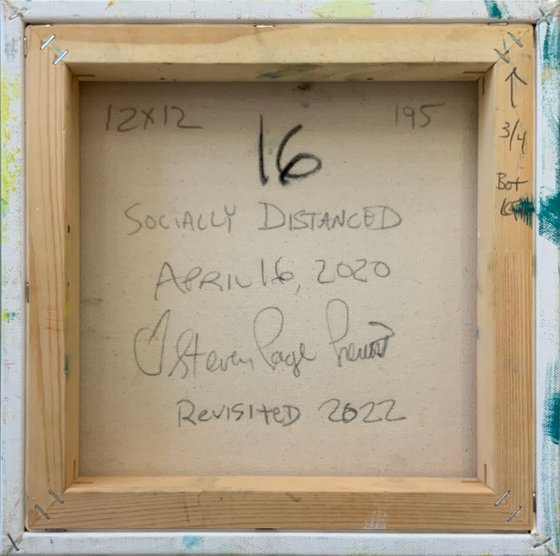 12x12 195
16
SOCIALLY DISTANCED
APRIL 16, 2020
Steven Page Prewitt
REVISITED 2022
3/4
Bot